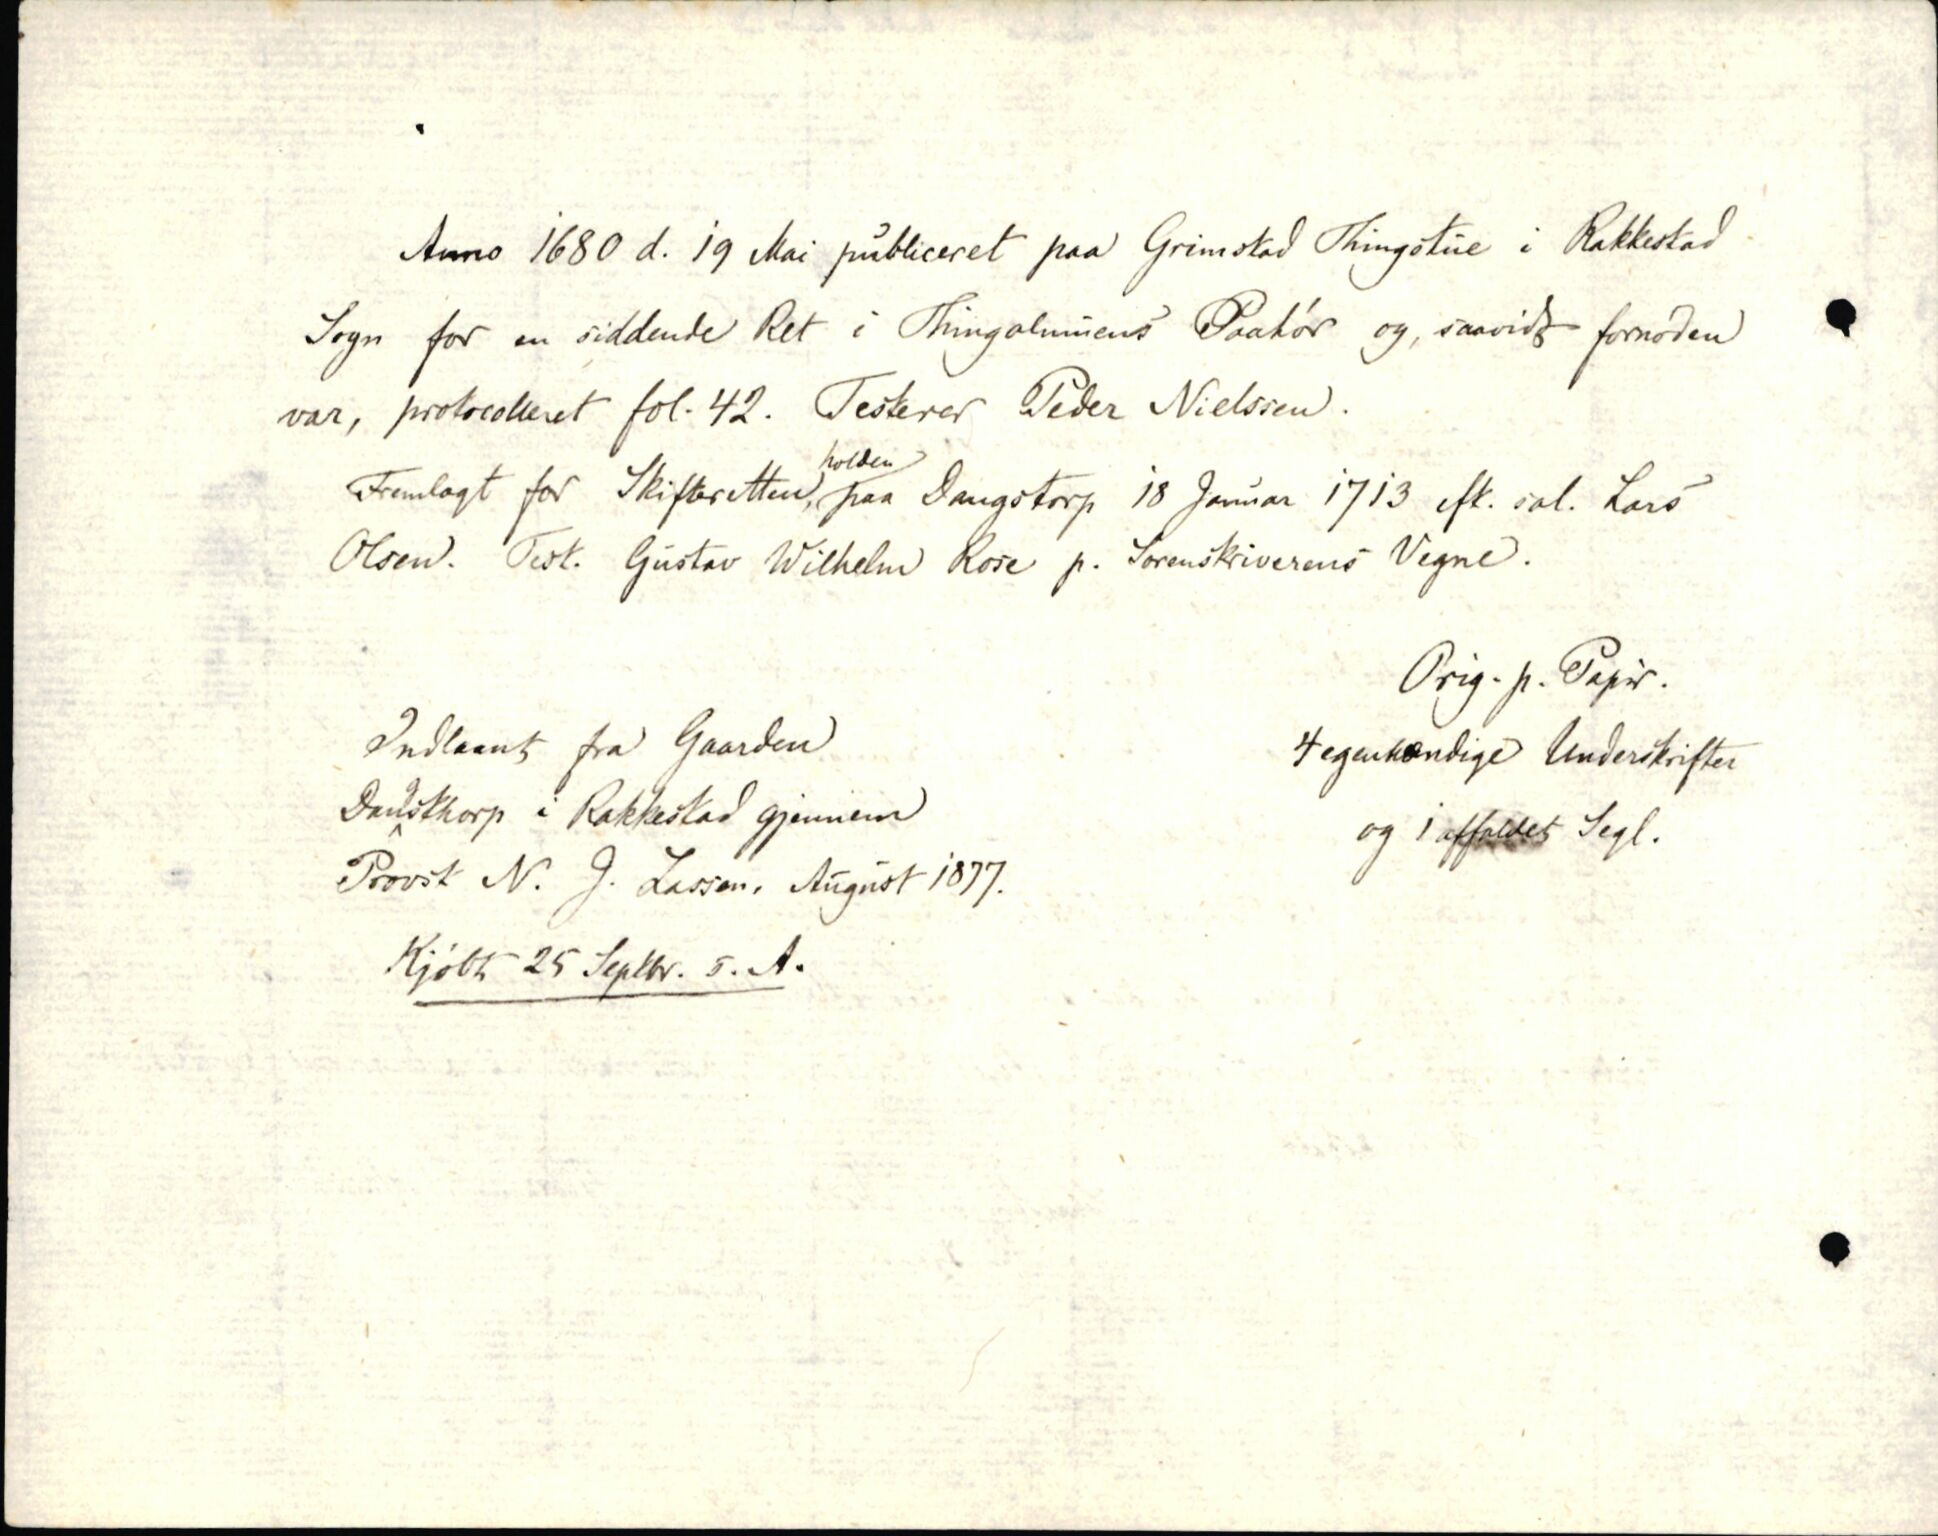 Anno 1680 d. 19 Mai publiceret paa Grimstad Thingstue i Rakkestad
Sogn for en siddende Ret i Thingalmuens Paahör og, saavidt fornöden
var, protocolleret fol. 42. Testerer Peder Nielssen.
holden
Fremlagt for Skifteretten, paa Daugstorp 18 Januar 1713 eft. sal. Lars
Olsen. Test. Gustav Wilhelm Rose p. Sorenskriverens Vegne.
Orig. p. Papir.
4 egenhændige Underskrifter
og 1 affaldet Segl.
Indlaant fra Gaarden
Daugsthorp i Rakkestad gjennem
Provst N. J. Lassen, August 1877.
Kjöbt 25 Septbr. s. A.